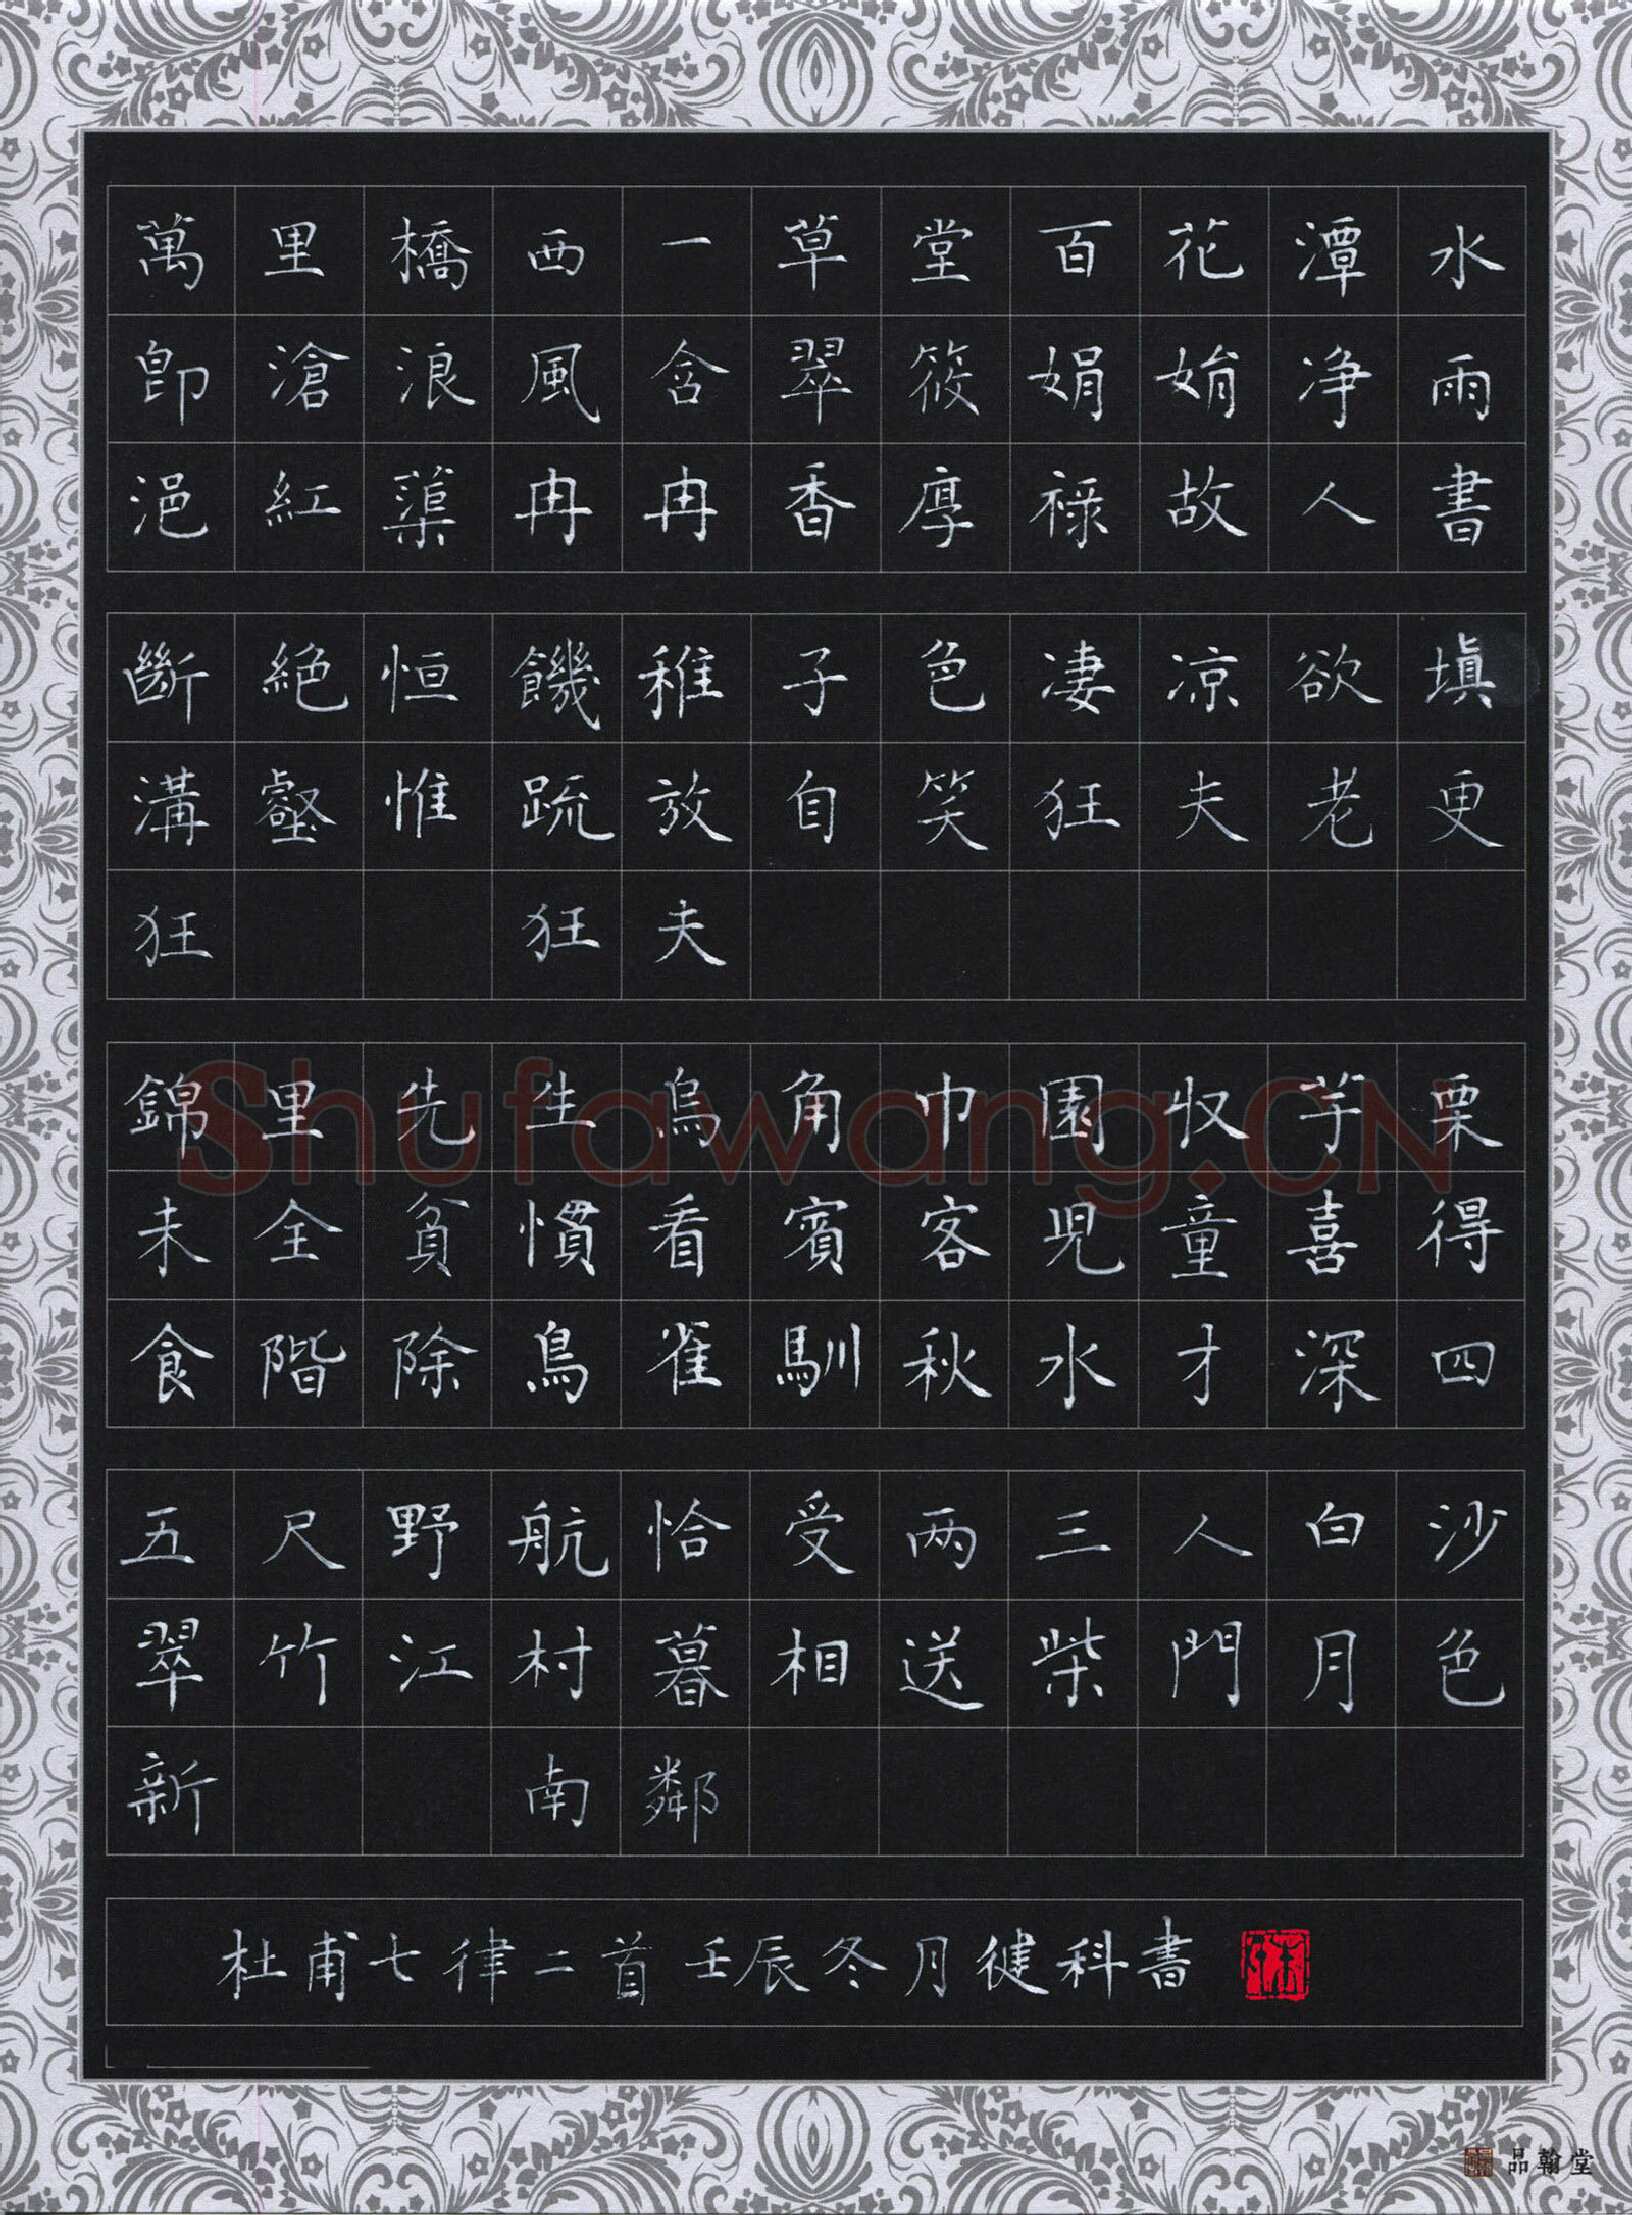 萬里橋西一草堂百花潭水
即滄浪風含翠筱娟娟净雨
浥紅蕖冉冉香厚禄故人書
斷絕恒饑稚子色凄凉欲填
溝壑惟疏放自笑狂夫老更
狂 狂夫
錦里先生烏角巾園收芋栗
未全貧慣看賓客兒童喜得
食階除鳥雀馴秋水才深四
五尺野航恰受两三人白沙
翠竹江村暮相送柴門月色
新 南鄰
杜甫七律二首壬辰冬月健科書
Shufawang.CN
品翰堂